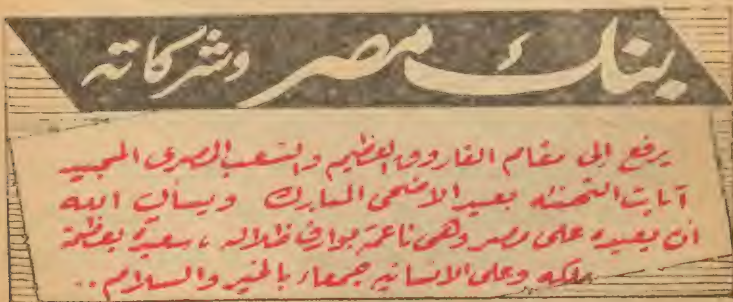 بنك مصر وشركاته
يرفع إلى مقام الفاروق العظيم والشعب المصرى المجيد
آيات التهنئة بعيد الأضحى المبارك ويسأل الله
أن يعيده على مصر وهى ناعمة بوارف ظلاله، سعيدة بعظمة
ملكه وعلى الانسانية جمعاء بالخير والسلام..